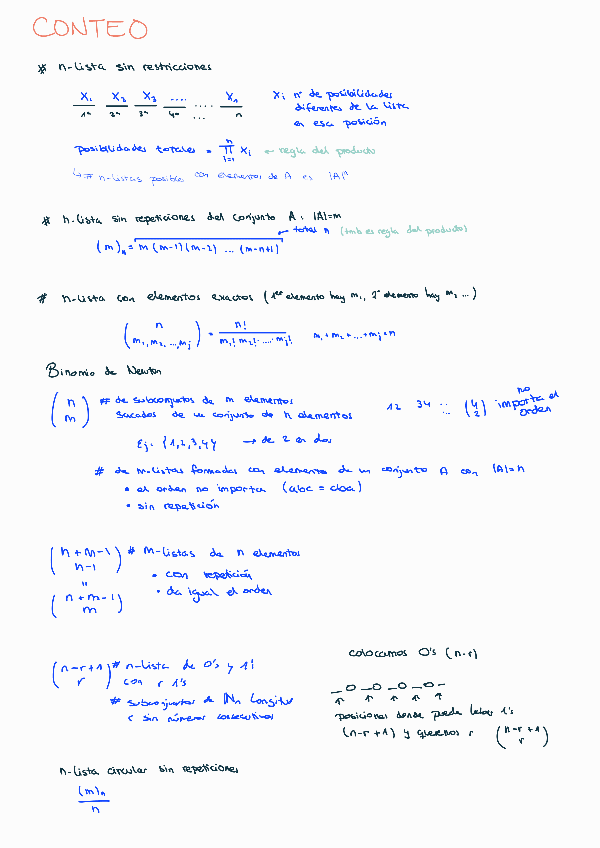 CONTEO
# n-lista sin restricciones
X₁ X₂ X₃ .... .... Xₙ
1ª 2ª 3ª 4ª ... n
Xi nº de posibilidades
diferentes de la lista
en esa posición
posibilidades totales = ∏ⁿᵢ₌₁ Xi ← regla del producto
↳ # n-listas posibles con elementos de A es |A|ⁿ
# n-lista sin repeticiones del conjunto A, |A|=m
← total n (tmb es regla del producto)
(m)ₙ = m (m-1)(m-2) ... (m-n+1)
# n-lista con elementos exactos (1er elemento hay m₁, 2º elemento hay m₂ ...)
(n / m₁, m₂, ..., mj) = n! / m₁! m₂! ..... mj! m₁+m₂+...+mj=n
Binomio de Newton
(n / m) # de subconjuntos de m elementos
sacados de un conjunto de n elementos
12 34 ... (4 / 2) no importa el orden
Ej. {1,2,3,4} → de 2 en dos
# de m-listas formadas con elementos de un conjunto A con |A|=n
• el orden no importa (abc = cba)
• sin repetición
(n+m-1 / n-1) # m-listas de n elementos
• con repetición
"
• da igual el orden
(n+m-1 / m)
(n-r+1 / r) # n-lista de 0's y 1's
con r 1's
# subconjuntos de ℕn longitud
r sin números consecutivos
colocamos 0's (n-r)
_ 0 _ 0 _ 0 _ 0 _
↑ ↑ ↑ ↑ ↑
posiciones donde puede haber 1's
(n-r+1) y queremos r (n-r+1 / r)
n-lista circular sin repeticiones
(m)ₙ / n